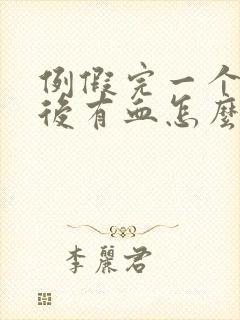 例假完一个
後有血怎麽
李麗君